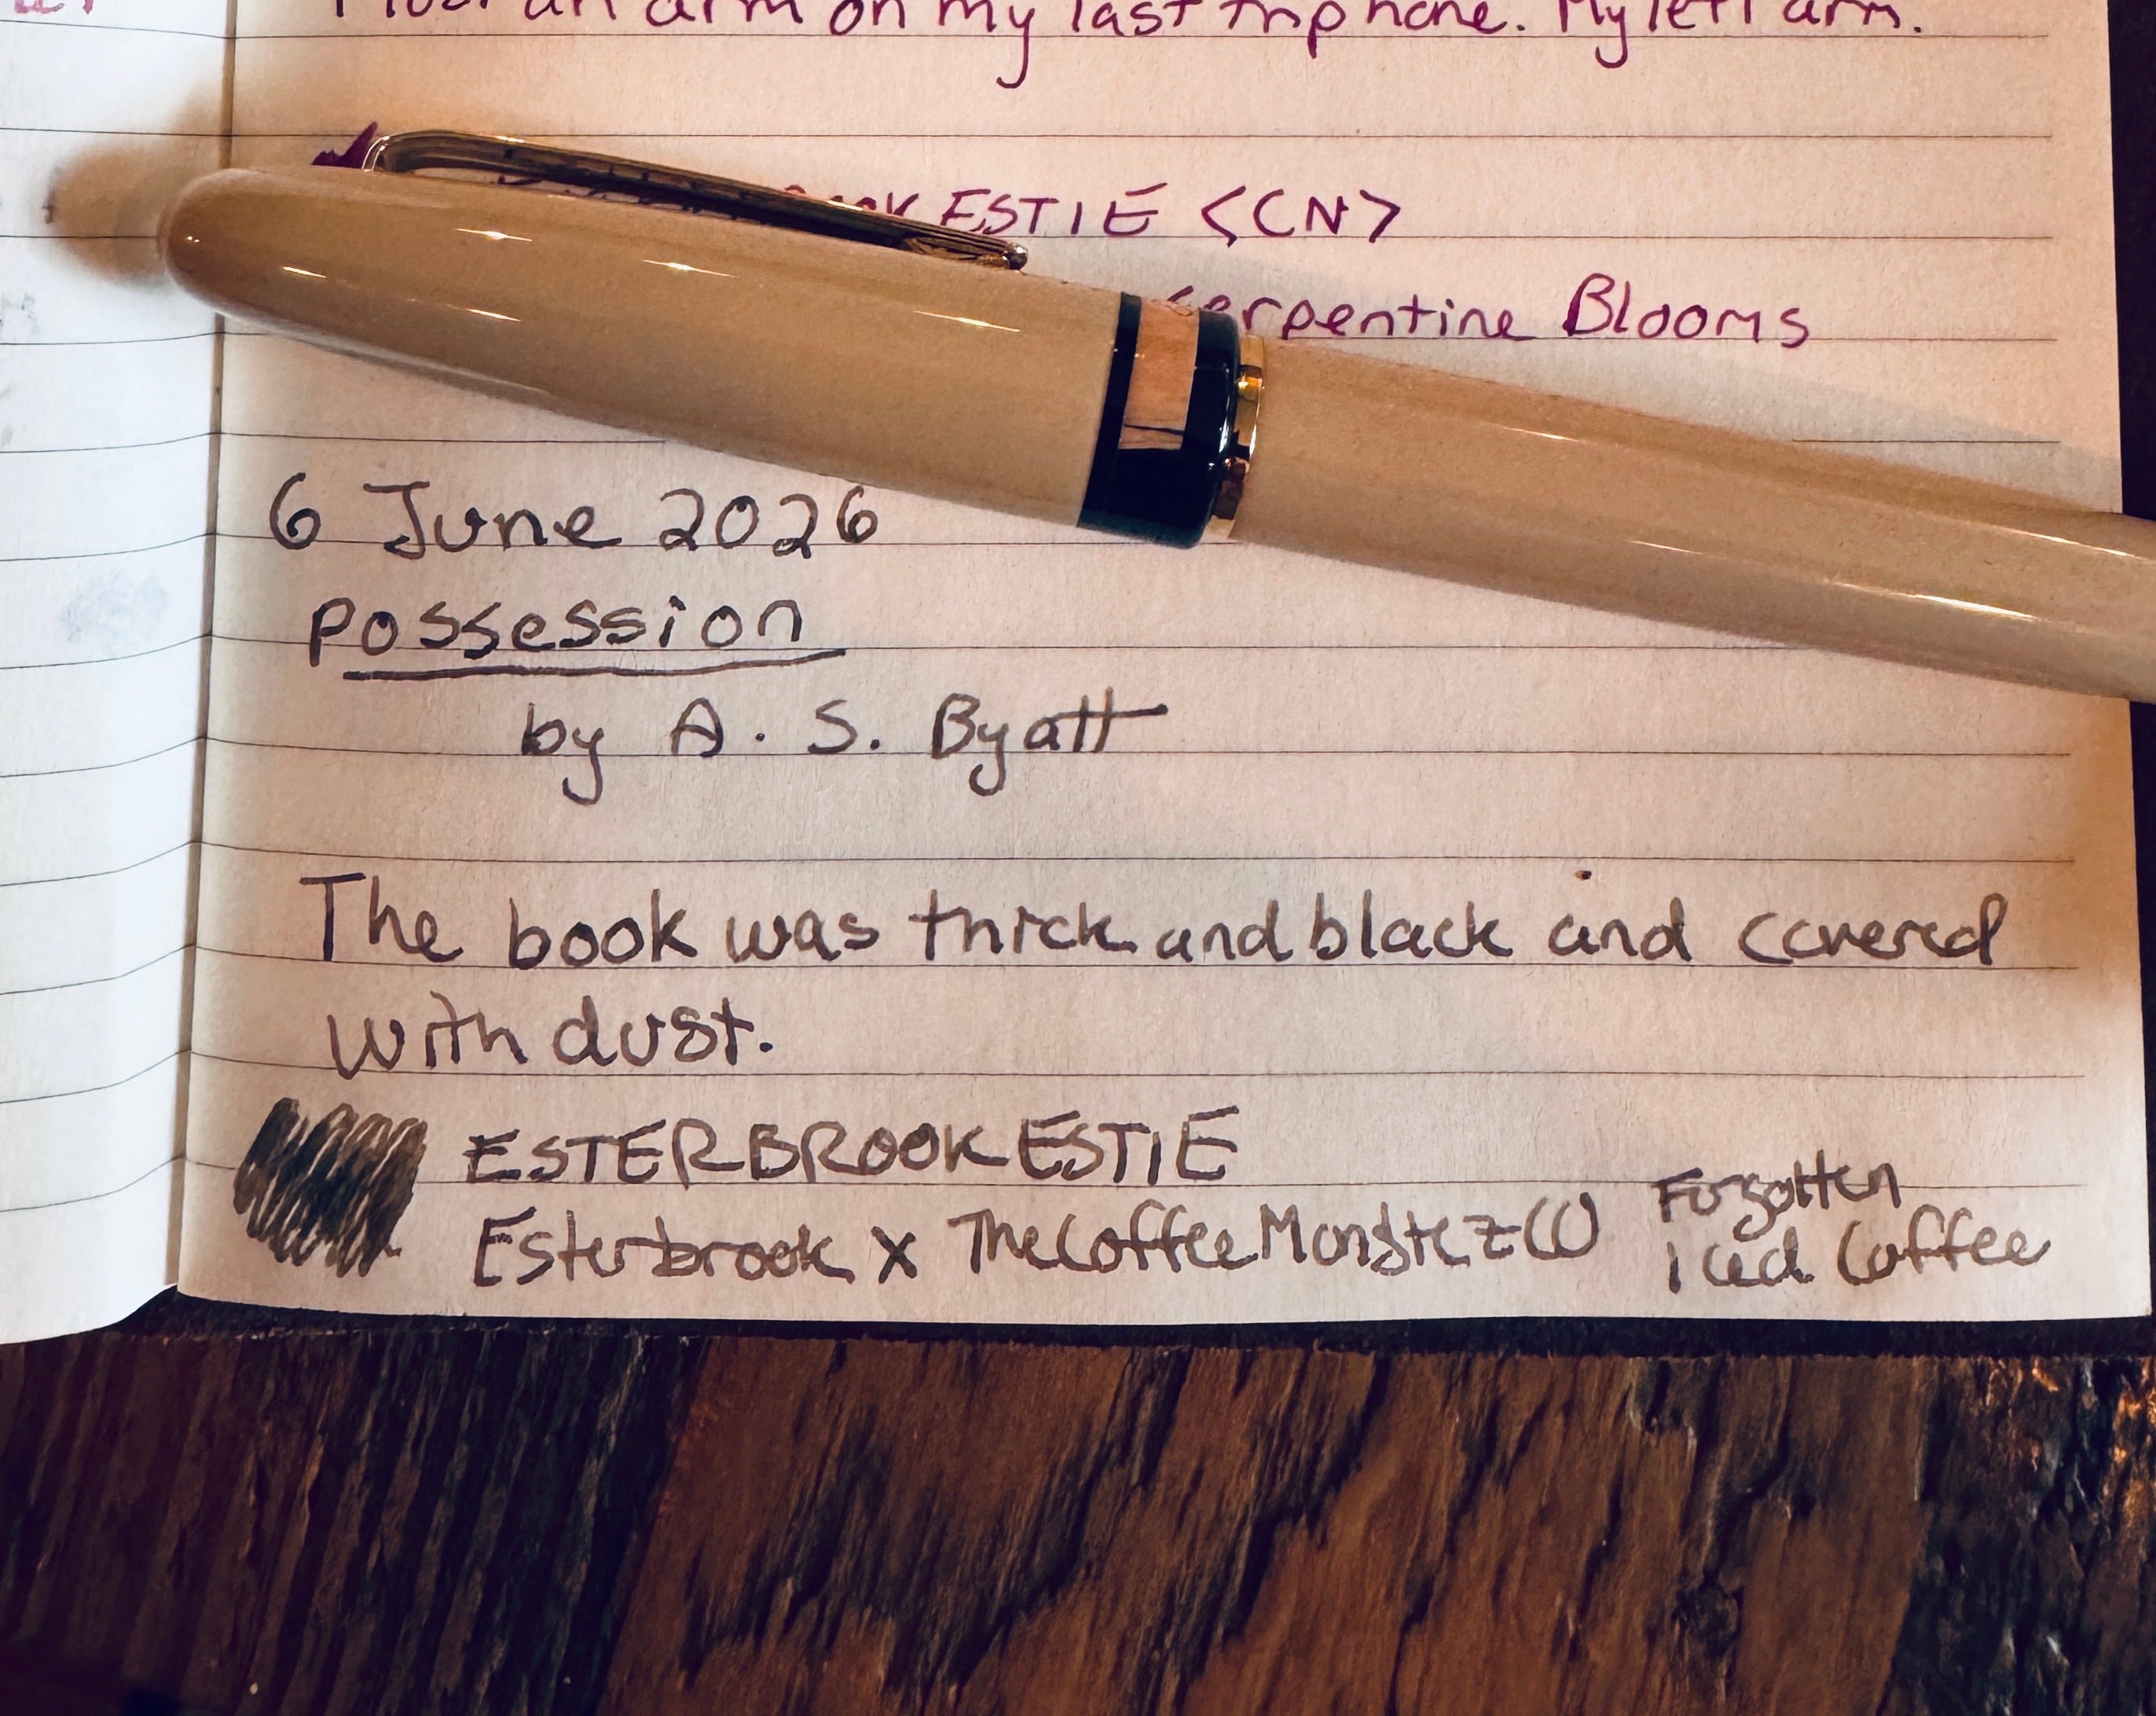 I lost an arm on my last trip home. My left arm.
ESTIE <CN>
Serpentine Blooms
6 June 2026
Possession
by A. S. Byatt
The book was thick and black and covered
with dust.
ESTERBROOK ESTIE
Esterbrook x TheCoffeeMonsterzCO Forgotten
Iced Coffee